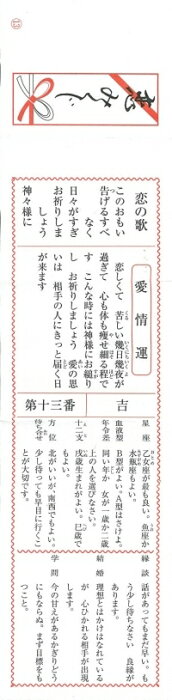 恋みくじ
恋の歌
このおもい
告げるすべ
なく
日々がすぎ
お祈りしま
しょう
神々様に
愛情運
恋しくて 苦しい幾日幾夜が
過ぎて 心も体も痩せ細る程で
す こんな時には神様にお縋り
し お祈りしましょう 愛の思
いは 相手の人にきっと届く日
が来ます
第十三番
吉
星座
乙女座が最も良い。魚座か
水瓶座もよい。
血液型
B型がよい。A型はさけよ。
年令差
同い年か 女が一歳か二歳
上の人を選びなさい。
十二支
戌歳生まれがよい。巳歳で
もよい。
方位
北がいいが、南西でもよい。
待ち合せ
少し待っても早目に行くこ
とが大切です。
縁談
話があってもまだ早い。も
う少し待ちなさい 良縁が
あります。
結婚
理想とはかけはなれている
が 心ひかれる相手が出現
学問
今の甘えがあるかぎりどう
にもならぬ。まず目標をも
つこと。